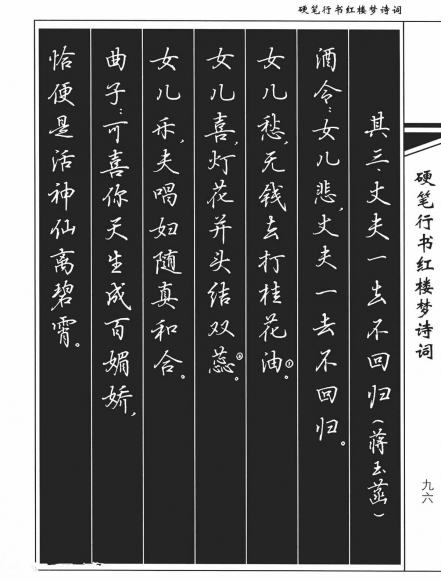 硬笔行书红楼梦诗词
硬笔行书红楼梦诗词
九六
其三、丈夫一去不回归(蒋玉菡)
酒令：女儿悲，丈夫一去不回归。
女儿愁，无钱去打桂花油①。
女儿喜，灯花并头结双蕊②。
女儿乐，夫唱妇随真和合。
曲子：可喜你天生成百媚娇，
恰便是活神仙离碧霄。